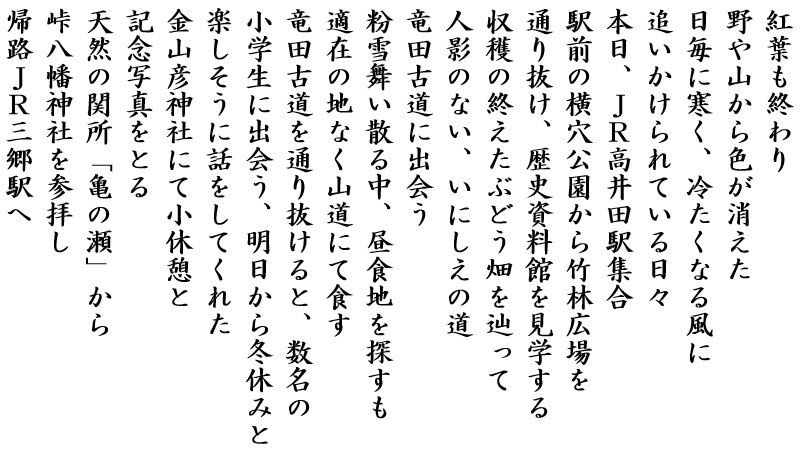 紅葉も終わり
野や山から色が消えた
日毎に寒く、冷たくなる風に
追いかけられている日々
本日、ＪＲ高井田駅集合
駅前の横穴公園から竹林広場を
通り抜け、歴史資料館を見学する
収穫の終えたぶどう畑を辿って
人影のない、いにしえの道
竜田古道に出会う
粉雪舞い散る中、昼食地を探すも
適在の地なく山道にて食す
竜田古道を通り抜けると、数名の
小学生に出会う、明日から冬休みと
楽しそうに話をしてくれた
金山彦神社にて小休憩と
記念写真をとる
天然の関所「亀の瀬」から
峠八幡神社を参拝し
帰路ＪＲ三郷駅へ